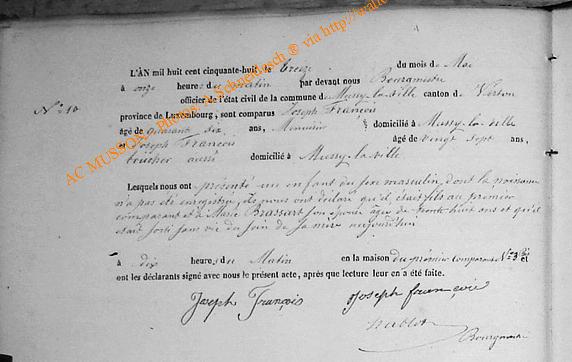 L'AN mil huit cent cinquante-huit, le treize du mois de Mai
à onze heures du matin par devant nous Bourgmestre
officier de l'état civil de la commune de Mussy-la-ville canton de Virton
N° 10
province de Luxembourg, sont comparus Joseph François
âgé de quarante dix ans, Menuisier domicilié à Mussy-la-ville
et Joseph François âgé de vingt sept ans,
boucher aussi domicilié à Mussy-la-ville
Lesquels nous ont présenté un enfant du sexe masculin, dont la naissance
n'a pas été enregistrée, ils nous ont déclaré qu'il était fils au premier
comparant et à Marie Brassart son épouse âgée de trente huit ans et qu'il
était sorti sans vie du sein de sa mère aujourd'hui
à dix heures du Matin en la maison du premier comparant N° 3 et
ont les déclarants signé avec nous le présent acte, après que lecture leur en a été faite.
Joseph François Joseph françois
Bourgmestre
AC MUSSON, Photos: A. Schneidesch ® via http://